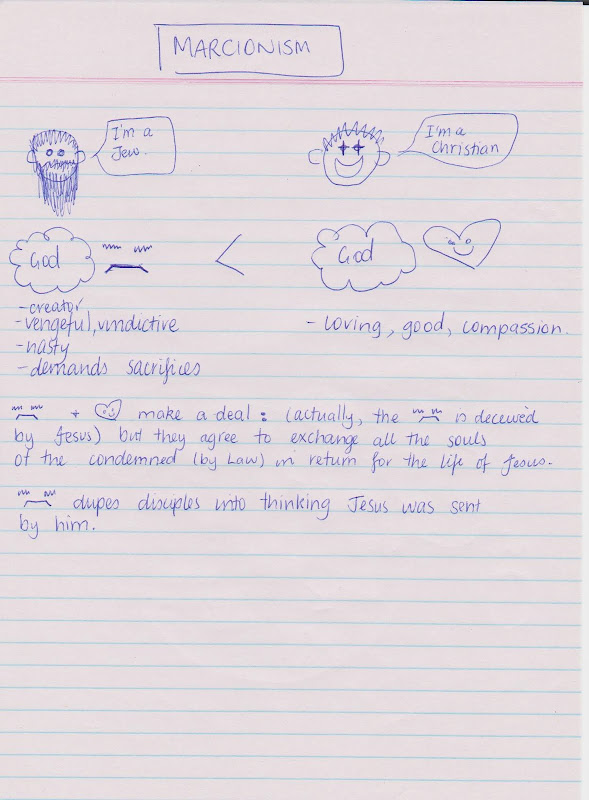 MARCIONISM
I'm a
Jew.
I'm a
Christian
God
<
God
-creator
-vengeful, vindictive
-nasty
-demands sacrifices
- Loving, good, compassion.
+ make a deal: (actually, the is deceived
by Jesus) but they agree to exchange all the souls
of the condemned (by Law) in return for the life of Jesus.
dupes disciples into thinking Jesus was sent
by him.